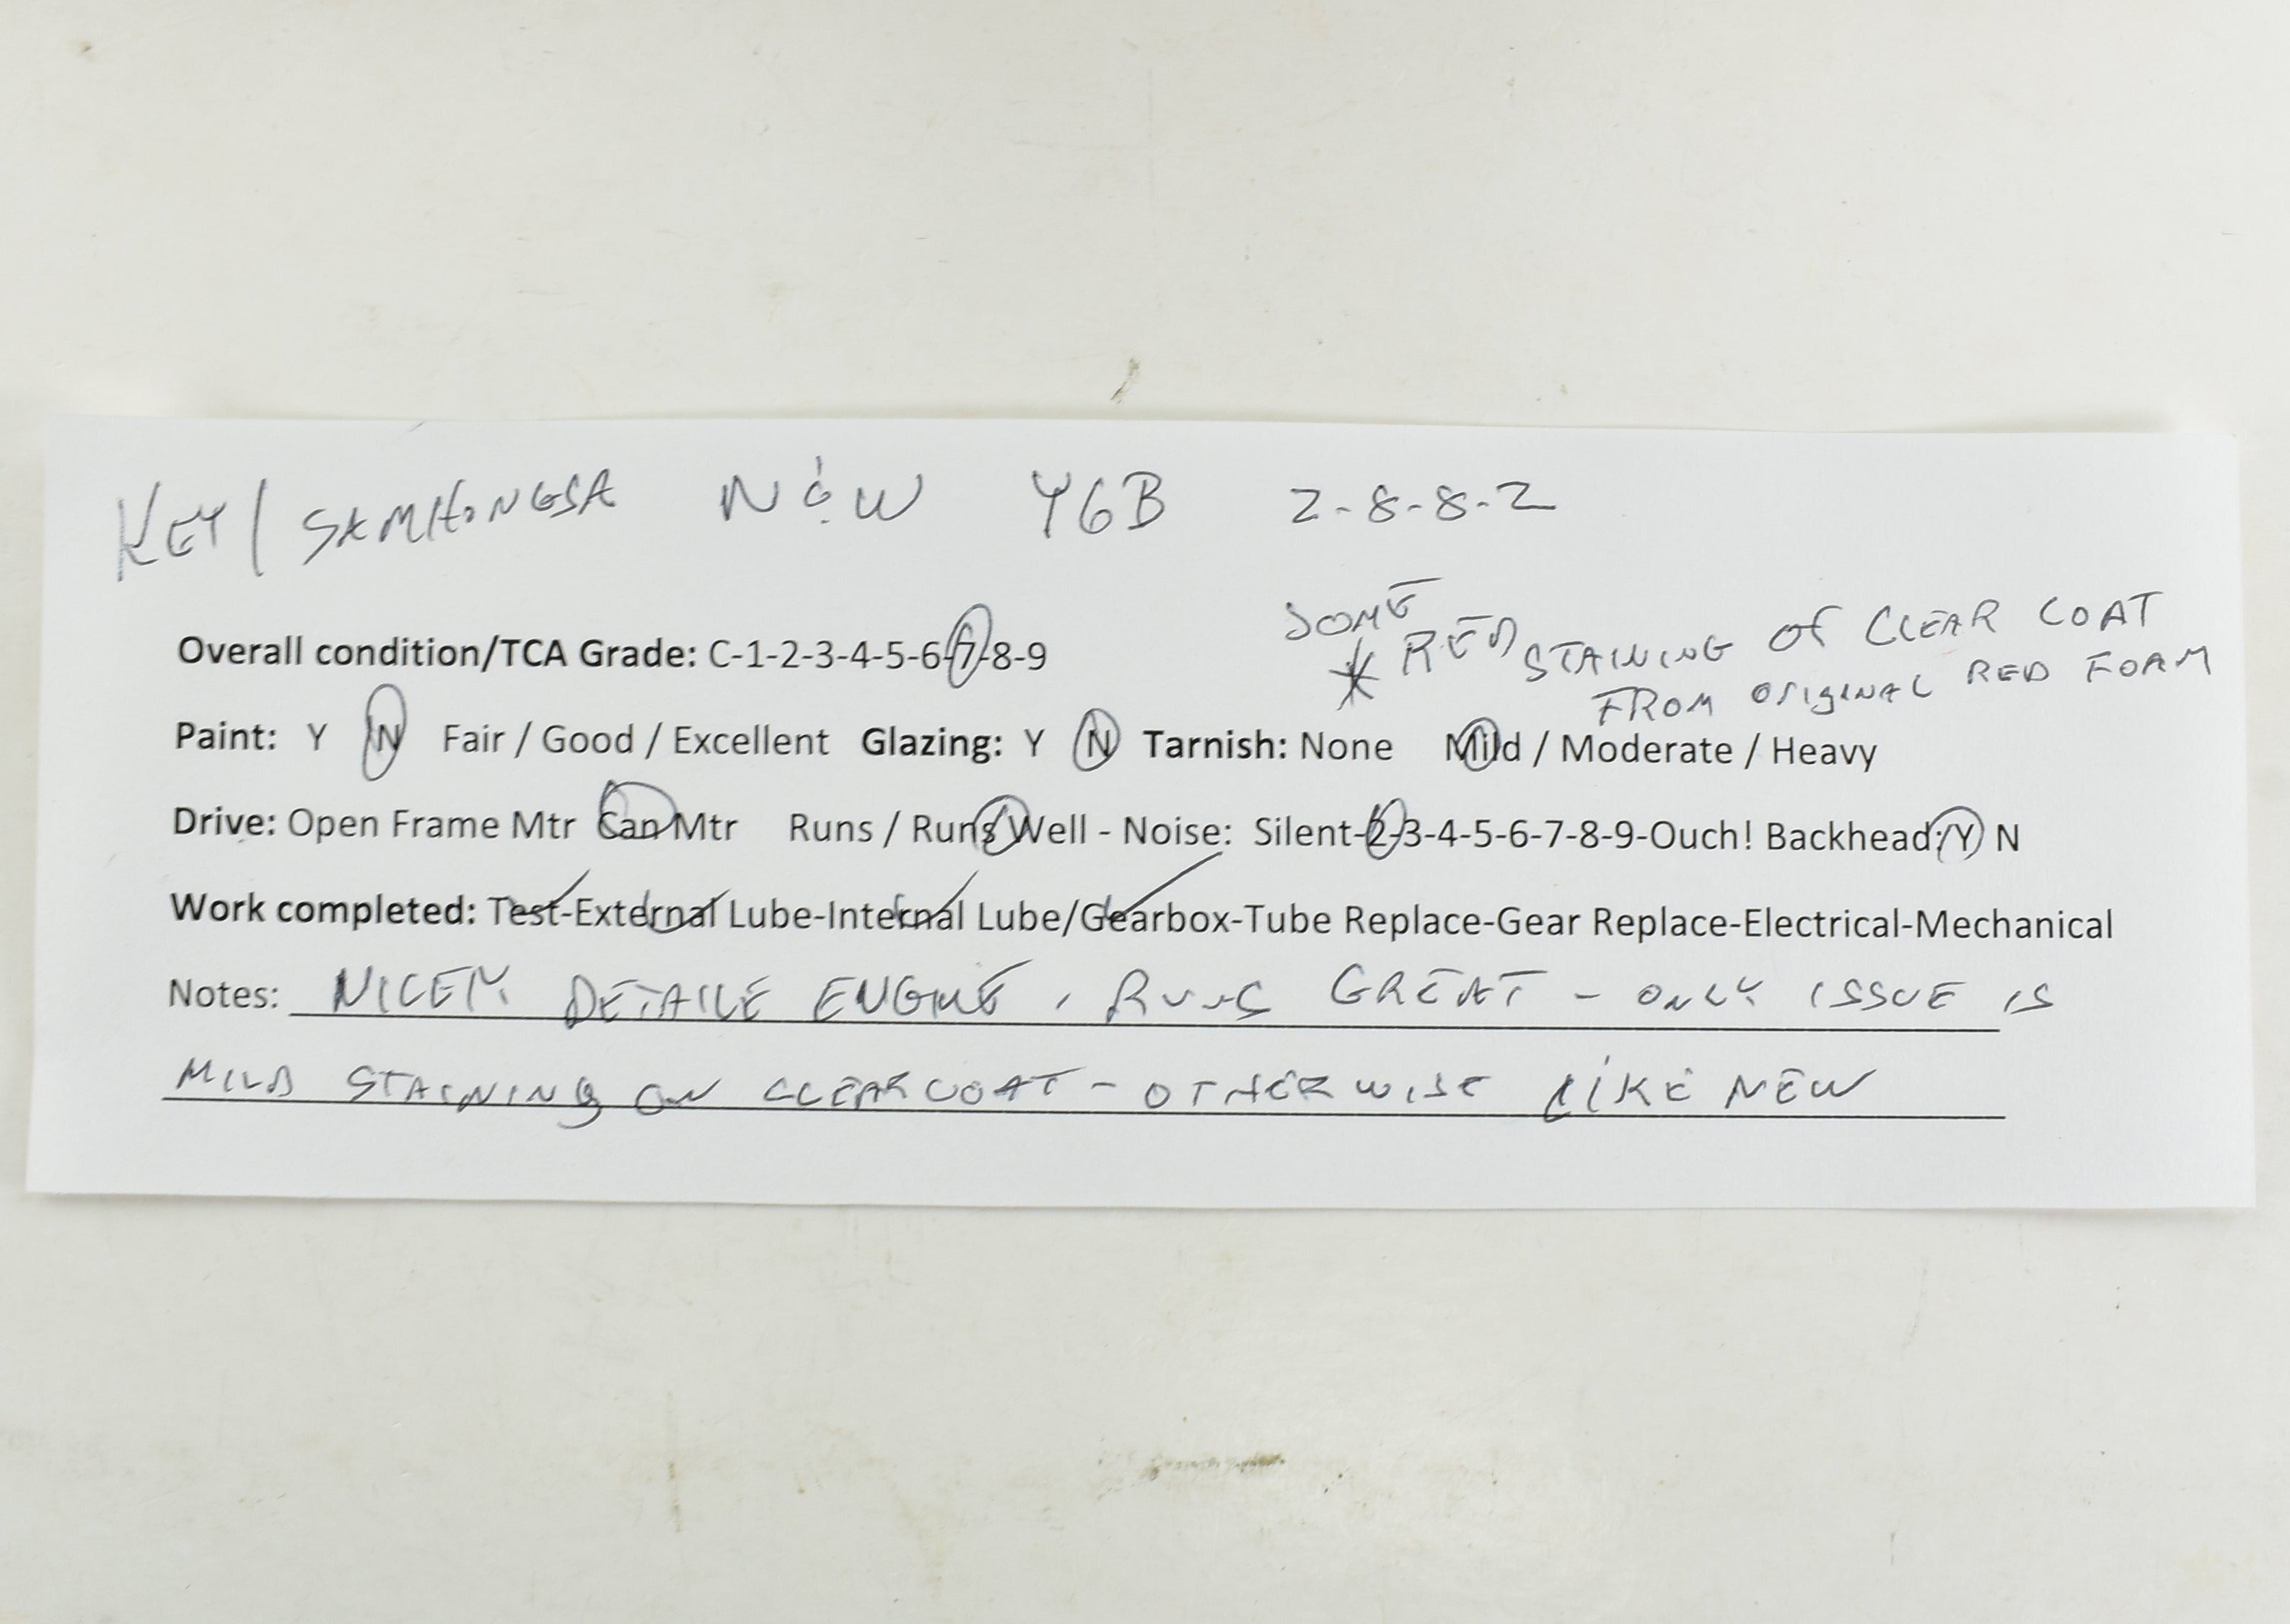 KEY/SAMHONGSA N&W Y6B 2-8-8-2
SOME
* RED STAINING Of CLEAR COAT
FROM ORIgINAL RED FOAM
Overall condition/TCA Grade: C-1-2-3-4-5-6-7-8-9
Paint: Y N Fair / Good / Excellent Glazing: Y N Tarnish: None Mild / Moderate / Heavy
Drive: Open Frame Mtr Can Mtr Runs / Runs Well - Noise: Silent-2-3-4-5-6-7-8-9-Ouch! Backhead: Y N
Work completed: Test-External Lube-Internal Lube/Gearbox-Tube Replace-Gear Replace-Electrical-Mechanical
Notes: DETAILE ENGINE, RUNS GREAT - ONLY ISSUE IS
MILD STAINING ON CLEARCOAT - OTHERWISE LIKE NEW